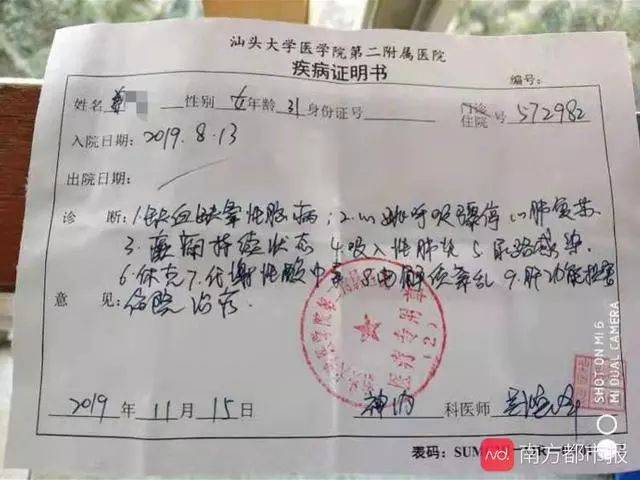 汕头大学医学院第二附属医院
疾病证明书
编号:
姓名 性别 女 年龄 31 身份证号 门诊 住院 号 572982
入院日期: 2019.8.13
出院日期:
诊 断: 1.缺血缺氧性脑病; 2.心跳呼吸骤停 心肺复苏
3.癫痫持续状态 4.吸入性肺炎 5.尿路感染.
6.休克 7.代谢性酸中毒 8.电解质紊乱 9.肝功能损害
意 见: 住院治疗.
医疗专用章
(2)
2019 年 11 月 15 日 神内 科医师
表码: SUM
SHOT ON MI 6
MI DUAL CAMERA
南方都市报